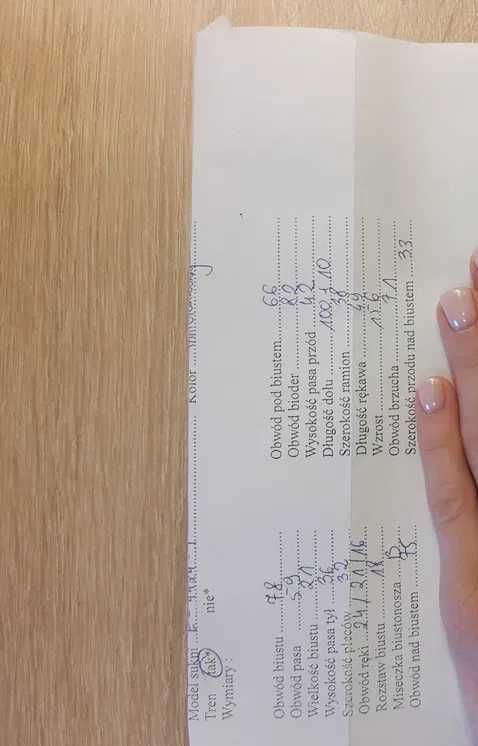 Model sukni Kolor
Tren tak* nie*
Wymiary :
Obwód biustu 78 Obwód pod biustem 66
Obwód pasa 59 Obwód bioder
Wielkość biustu 21 Wysokość pasa przód 42
Wysokość pasa tył 36 Długość dołu 100 + 10
Szerokość pleców 32 Szerokość ramion 38
Obwód ręki 24 / 21 / 16 Długość rękawa
Rozstaw biustu 18 Wzrost
Miseczka biustonosza B Obwód brzucha 71
Obwód nad biustem 75 Szerokość przodu nad biustem 33